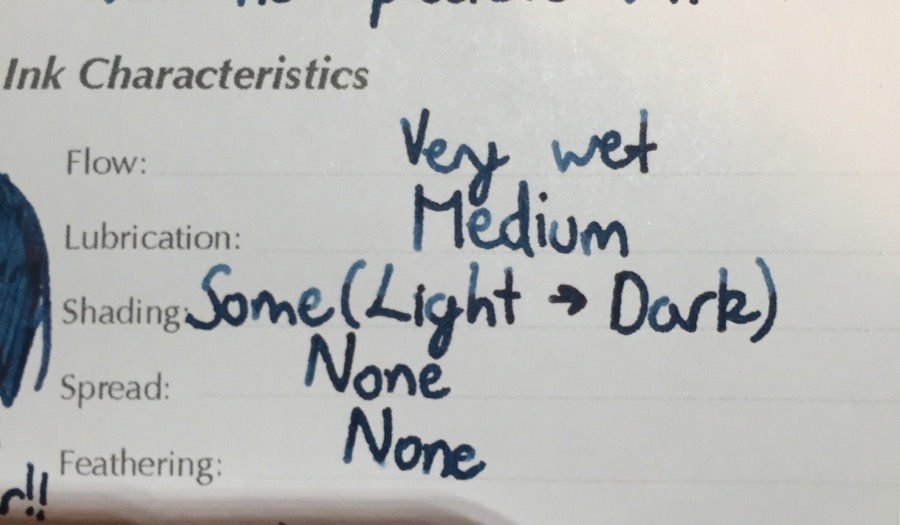 Ink Characteristics
Flow: Very wet
Lubrication: Medium
Shading: Some (Light → Dark)
Spread: None
Feathering: None